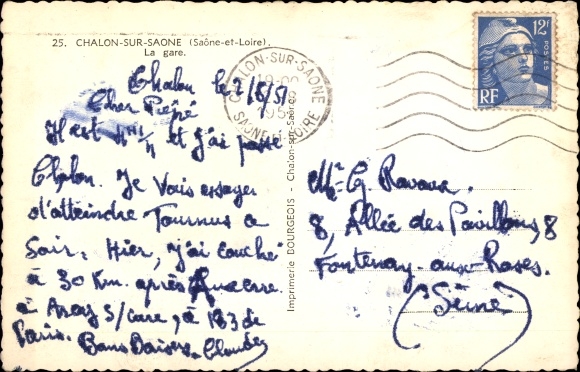 25. CHALON-SUR-SAONE (Saône-et-Loire).
La gare.
Chalon le 2/8/51
Cher Pépé
Il est et j'ai passé
Chalon. Je vais essayer
d'atteindre Tournus ce
Soir. Hier, j'ai couché
à 30 Km. après Auxerre
à Arcy s/Cure, à 183 de
Paris. Bons Baisers. Claude
Imprimerie BOURGEOIS - Chalon-sur-Saône
CHALON-SUR-SAONE
SAONE-ET-LOIRE
12F
POSTES
RF
Mr G
8, Allée des Pavillons, 8
Fontenay-aux-Roses.
(Seine)